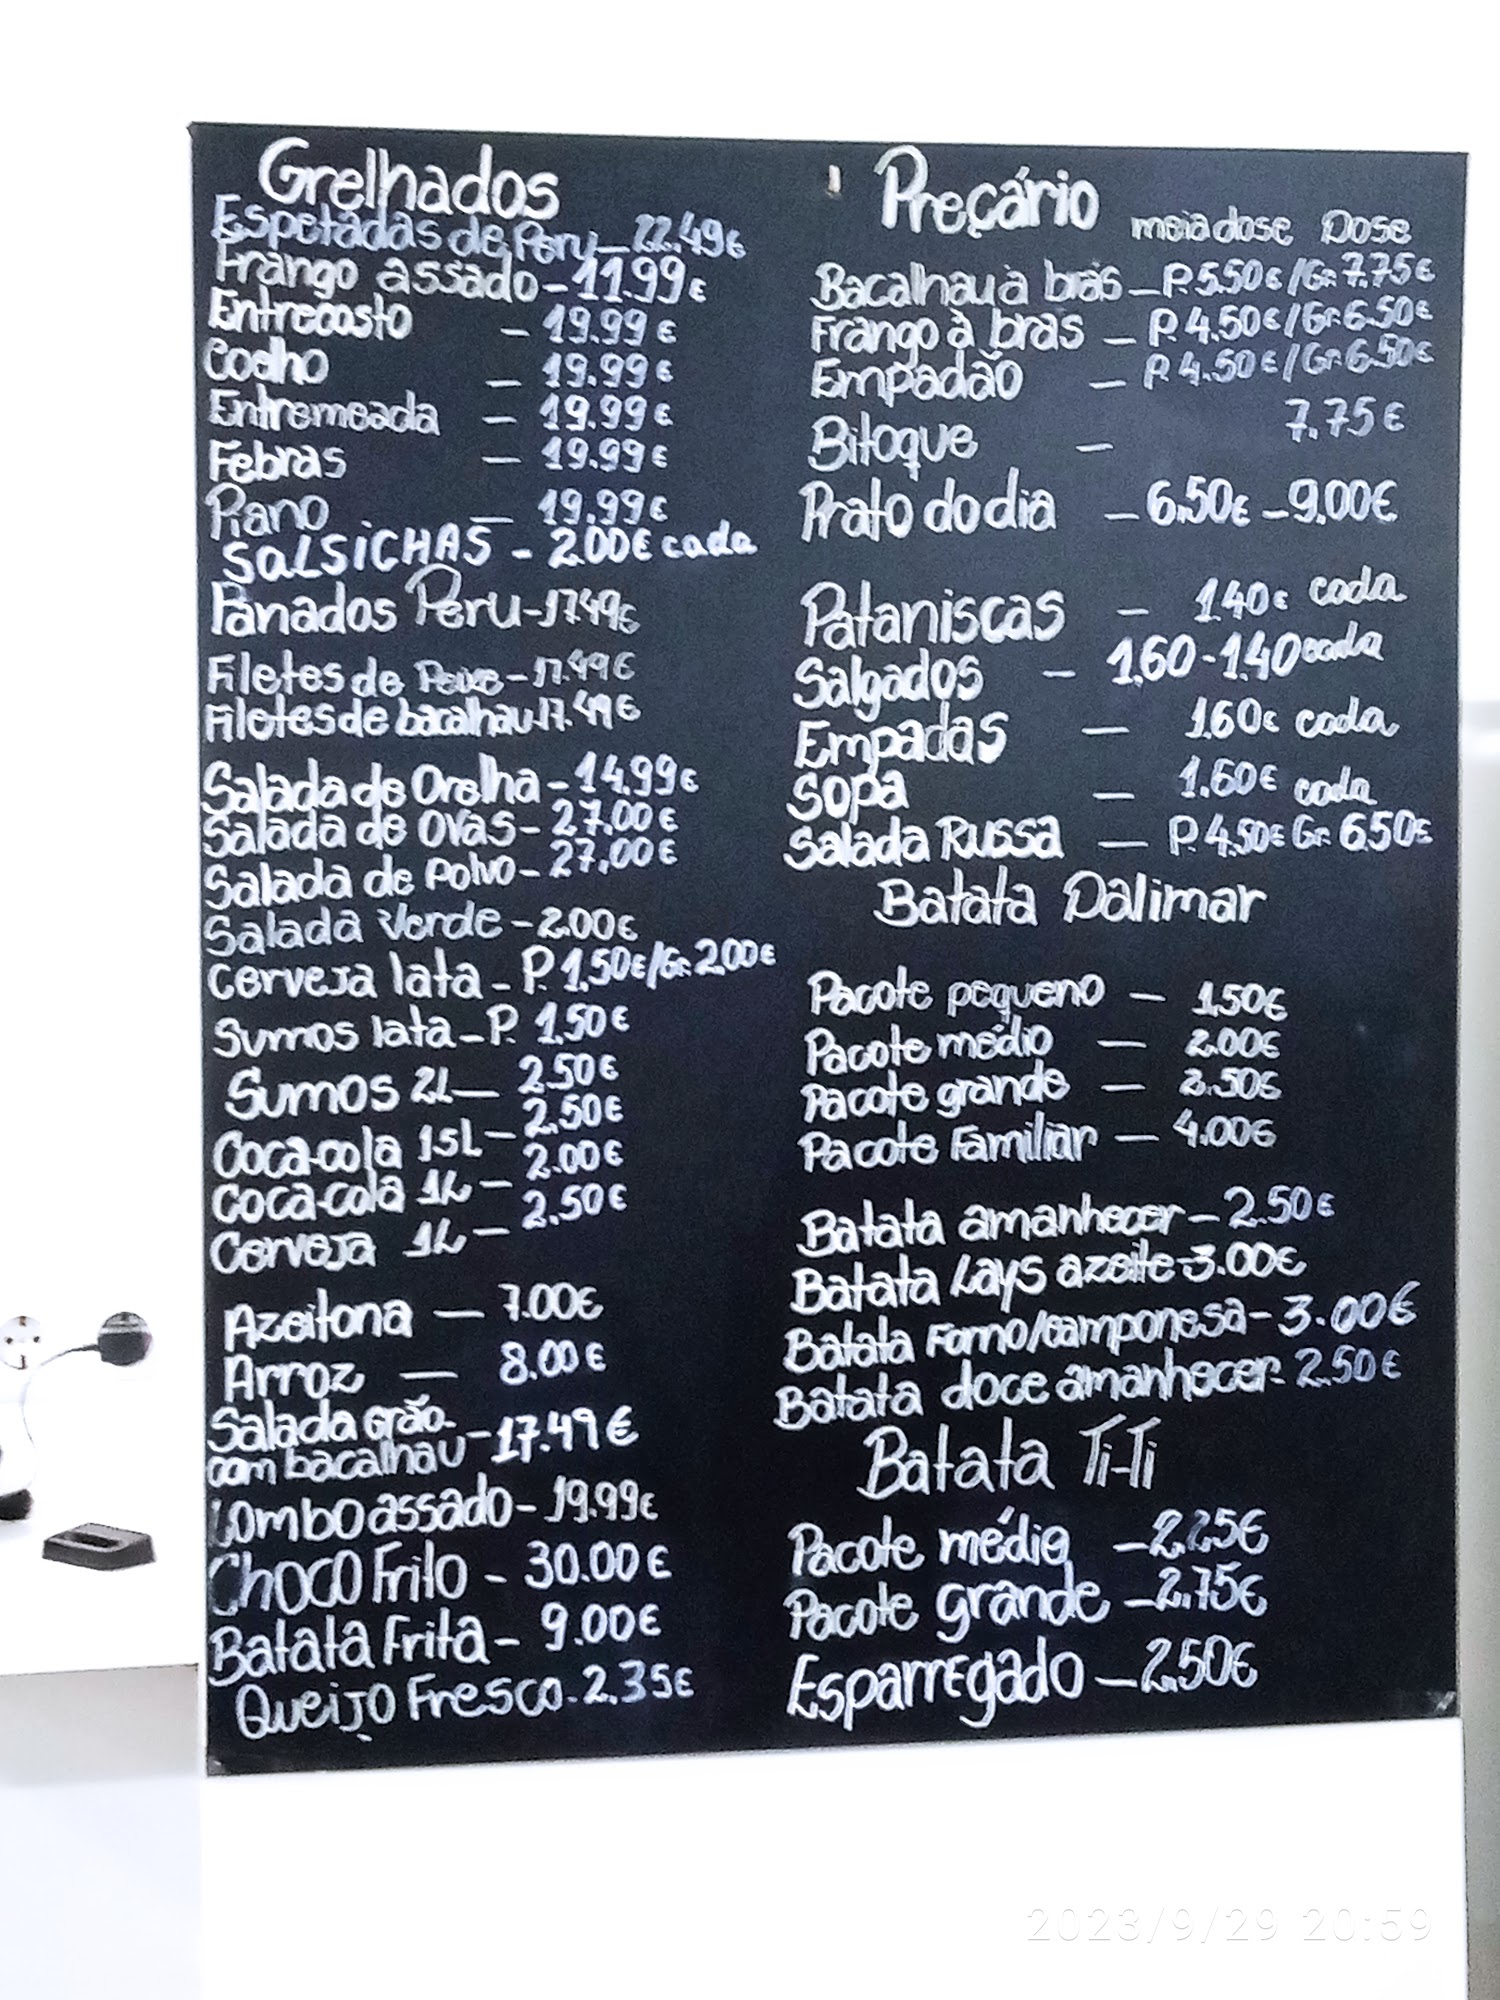 Grelhados
Espetadas de Peru - 22.49€
Frango assado - 11.99€
Entrecosto - 19.99€
Coelho - 19.99€
Entremeada - 19.99€
Febras - 19.99€
Piano - 19.99€
SALSICHAS - 2.00€ cada
Panados Peru - 17.49€
Filetes de Peixe - 17.49€
Filetes de bacalhau 17.49€
Salada de Orelha - 14.99€
Salada de Ovas - 27.00€
Salada de Polvo - 27,00€
Salada Verde - 2.00€
Cerveja lata - P. 1,50€/Gr. 2.00€
Sumos lata - P. 1.50€
Sumos 2L - 2.50€
Coca-cola 1.5L - 2.50€
Coca-cola 1L - 2.00€
Cerveja 1L - 2.50€
Azeitona - 7.00€
Arroz - 8.00€
Salada grão - 17.49€
com bacalhau
Lombo assado - 19.99€
Choco Frito - 30.00€
Batata Frita - 9.00€
Queijo Fresco - 2.35€
Preçário meia dose Dose
Bacalhau à brás - P. 5.50€/Gr. 7.75€
Frango à bras - P. 4.50€/Gr. 6.50€
Empadão - P. 4.50€/Gr. 6.50€
Bitoque - 7.75€
Prato do dia - 6.50€ - 9.00€
Pataniscas - 1.40€ cada
Salgados - 1.60 - 1.40 cada
Empadas - 1.60€ cada
Sopa - 1.60€ cada
Salada Russa - P. 4.50€ Gr. 6.50€
Batata Dalimar
Pacote pequeno - 1.50€
Pacote médio - 2.00€
Pacote grande - 2.50€
Pacote Familiar - 4.00€
Batata amanhecer - 2.50€
Batata Lays azeite - 3.00€
Batata Forno/camponesa - 3.00€
Batata doce amanhecer - 2.50€
Batata Ti-Ti
Pacote médio - 2.25€
Pacote grande - 2.75€
Esparregado - 2.50€
2023/9/29 20:59